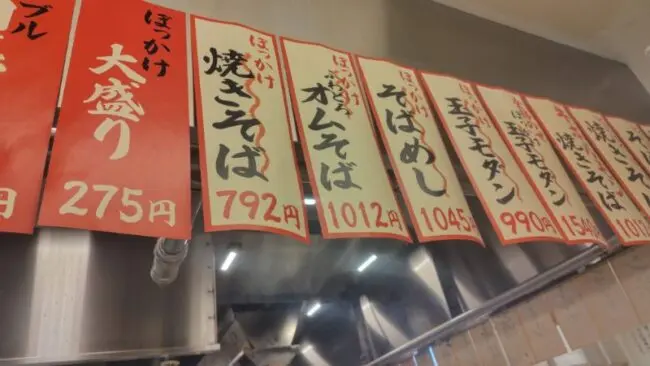 ブル
円
ぼっかけ
大盛り
275円
ぼっかけ
焼きそば
792円
ぼっかけ
ふわとろ
オムそば
1012円
ぼっかけ
そばめし
1045円
ぼっかけ
玉子モダン
990円
玉子モダン
154
焼きそば
101
焼きそば